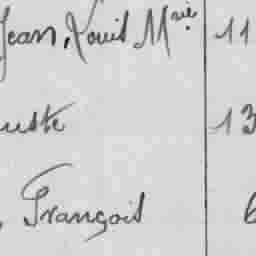 Jean, Louis Mie 11
uste 13
, François 6